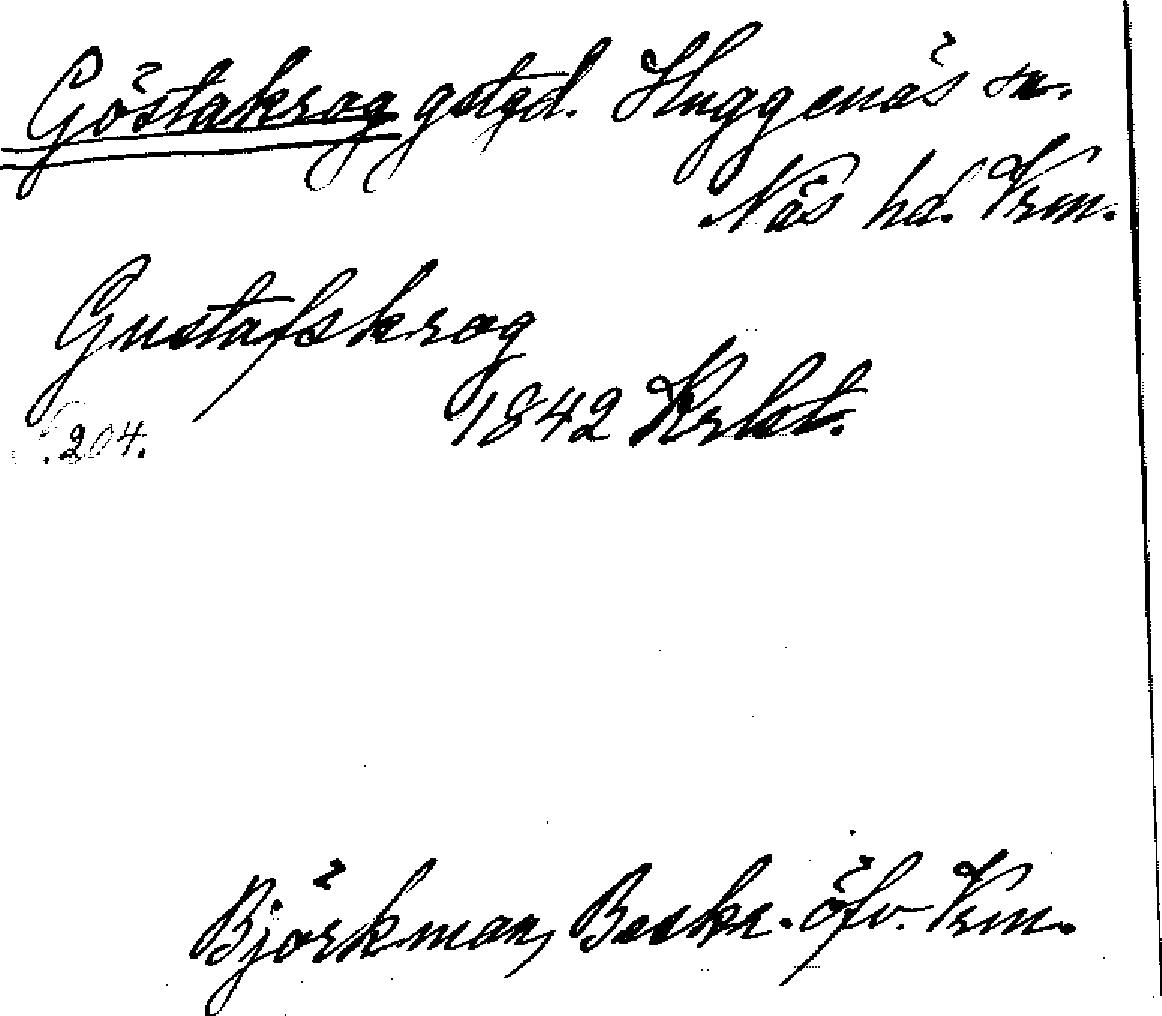 Göstakrog gstgd. Huggenäs sn.
Näs hd. Vrm.
Gustafskrog
1842 Krlst.
S. 204.
Björkman, Beskr. öfv. Vrm.